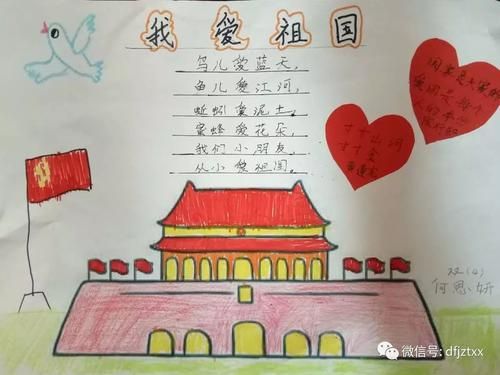 我爱祖国
鸟儿爱蓝天，
鱼儿爱江河，
蚯蚓爱泥土，
蜜蜂爱花朵，
我们小朋友，
从小爱祖国。
国家是大家的
爱国是每个
人的本
寸寸山河
寸寸金
黄遵宪
双(4)
何思妍
微信号: dfjztxx